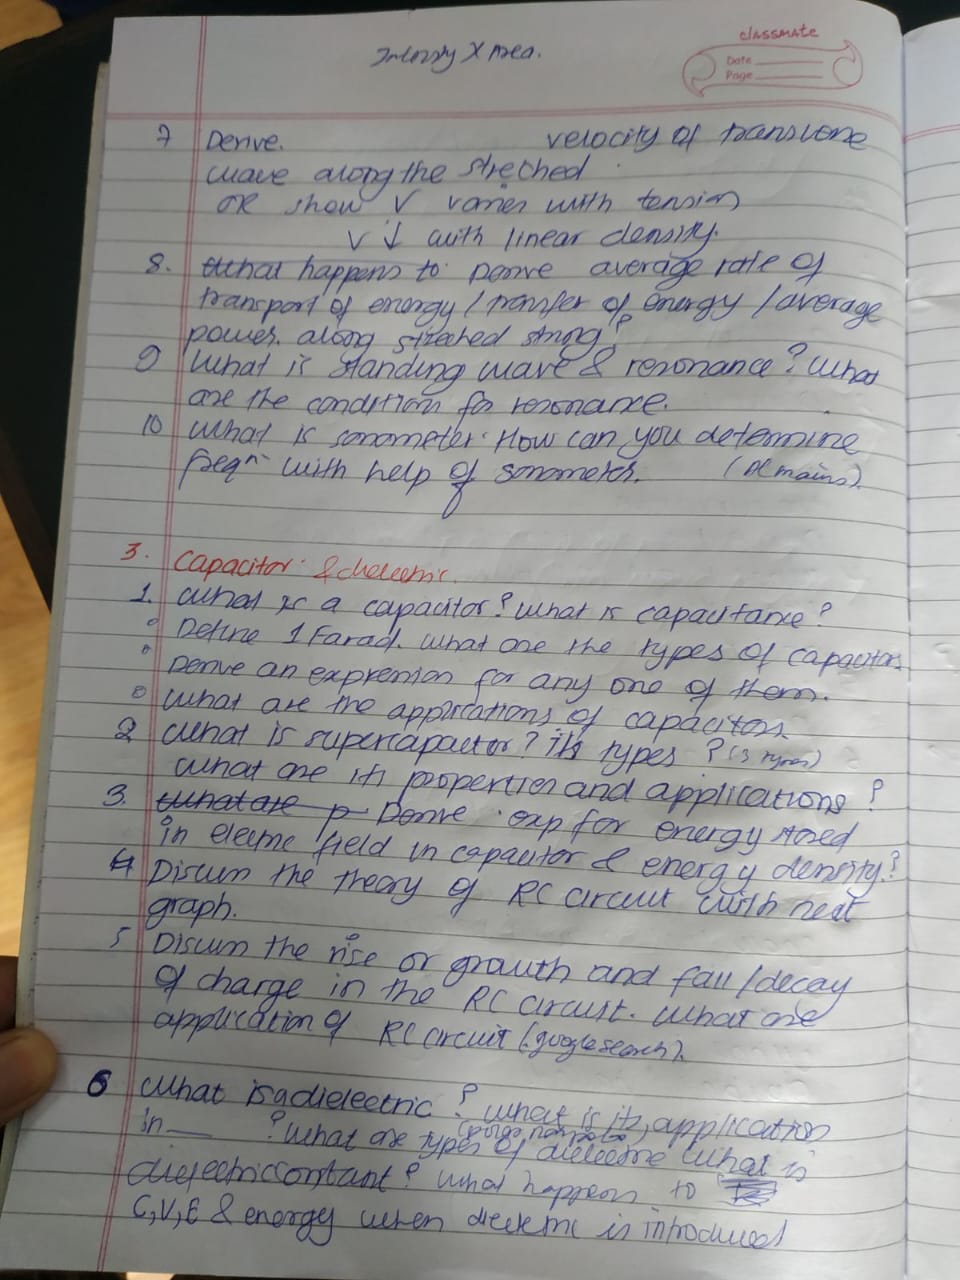 Intensity X Area.
classmate
Date
Page
7 Derive. velocity of transverse
wave along the streched
OR show V varies with tension
V ↓ with linear density.
8. What happens to Derive average rate of
transport of energy / transfer of energy / average
power along streched string?
9 What is standing wave & resonance? What
are the conditions for resonance.
10 What is sonometer. How can you determine
freqn with help of sonometer.
3. Capacitor & dielectric.
1. What is a capacitor? What is capacitance?
Define 1 Farad. what are the types of capacitors
Derive an expression for any one of them.
What are the applications of capacitors
2 What is supercapacitor? its types? (3 types)
What are its properties and applications?
3. What are p Derive exp for energy stored
in electric field in capacitor & energy density?
4 Discuss the theory of RC circuit with neat
graph.
5 Discuss the rise or growth and fall / decay
of charge in the RC circuit. What are
application of RC circuit (google search).
6 What is a dielectric? What is its application
in ___? What are types of dielectric What is
dielectric constant? What happens to
C, V, E & energy when dielectric is introduced